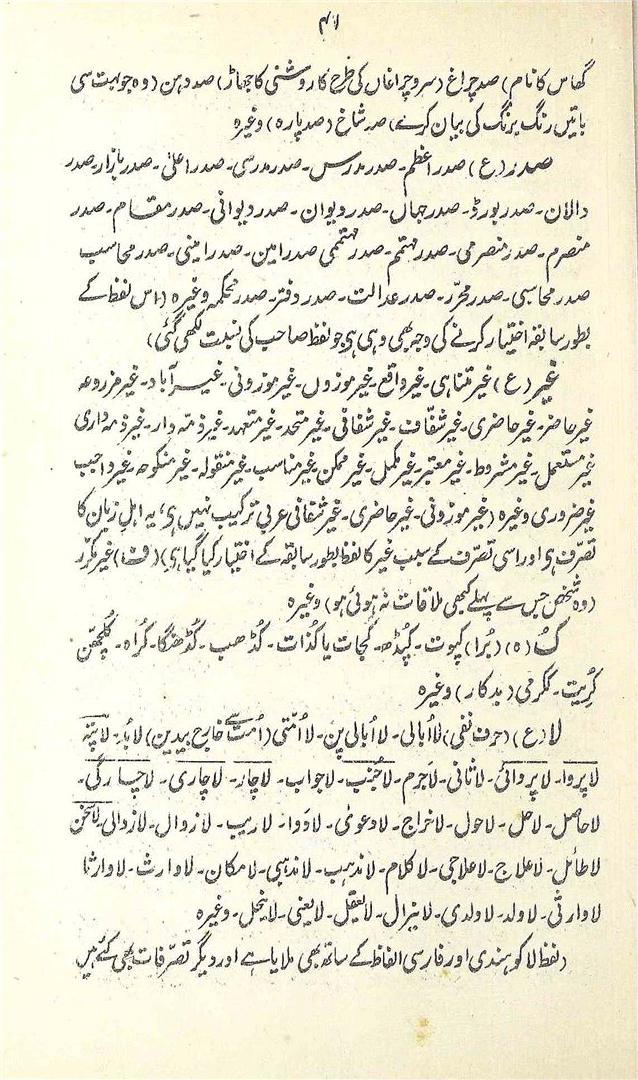 ۴۱
گھاس کا نام) صد چراغ (سرو چراغاں کی طرح کا روشنی کا جھاڑ) صد دہن (وہ جو بہت سی
باتیں رنگ برنگ کی بیان کرے) صد شاخ (صد پارہ) وغیرہ
صدر (ع) صدر اعظم۔ صدر مدرس۔ صدر مدرسی۔ صدر اعلیٰ۔ صدر بازار۔ صدر
دالان۔ صدر بورڈ۔ صدر جہاں۔ صدر دیوان۔ صدر دیوانی۔ صدر مقام۔ صدر
منصرم۔ صدر منصرمی۔ صدر مہتمم۔ صدر مہتممی صدر امین۔ صدر امینی۔ صدر محاسب
صدر محاسبی۔ صدر محرّر۔ صدر عدالت۔ صدر دفتر۔ صدر محکمہ وغیرہ (اس لفظ کے
بطور سابقہ اختیار کرنے کی وجہ بھی وہی ہی جو لفظ صاحب کی نسبت لکھی گئی)
غیر (ع) غیر متناہی۔ غیر واقع۔ غیر موزوں۔ غیر موزونی۔ غیر آباد۔ غیر مزروعہ
غیر حاضر۔ غیر حاضری۔ غیر شفّاف۔ غیر شفافی۔ غیر متحد۔ غیر متعہد۔ غیر ذمّہ دار۔ غیر ذمہ داری
غیر مستعمل۔ غیر مشروط۔ غیر معتبر۔ غیر مکمل۔ غیر ممکن۔ غیر مناسب۔ غیر منقولہ۔ غیر منکوحہ۔ غیر واجب
غیر ضروری وغیرہ (غیر موزونی۔ غیر حاضری۔ غیر شفافی عربی ترکیب نہیں ہی، یہ اہل زبان کا
تصرف ہی اور اسی تصرّف کے سبب غیر کا لفظ بطور سابقہ کے اختیار کیا گیا ہی) (ف) غیر مکرّر
(وہ شخص جس سے پہلے کبھی ملاقات نہ ہوئی ہو) وغیرہ
کُ (ہ) (بُرا) کپوت۔ کُپڈھ۔ کُجات یا کُذات۔ کُڈھب۔ کُڈھنگا۔ کُراہ۔ کُلچھن
کُریت۔ ککرمی (بدکار) وغیرہ
لا (ع) (حرف نفی) لااُبالی۔ لااُبالی پن۔ لااُمّتی (اُمت سے خارج بیدین) لابُد۔ لاپتہ
لاپروا۔ لاپروائی۔ لاثانی۔ لاجرم۔ لاجُنب۔ لاجواب۔ لاچار۔ لاچاری۔ لاچارگی۔
لاحاصل۔ لاحل۔ لاحول۔ لاخراج۔ لادعویٰ۔ لادوا۔ لاریب۔ لازوال۔ لازوالی۔ لاسخن
لاطائل۔ لاعلاج۔ لاعلاجی۔ لاکلام۔ لامذہب۔ لامذہبی۔ لامکان۔ لاوارث۔ لاوارثا
لاوارثی۔ لاولد۔ لاولدی۔ لایزال۔ لایعقل۔ لایعنی۔ لاینحل۔ وغیرہ
(لفظ لا کو ہندی اور فارسی الفاظ کے ساتھ بھی ملایا ہے اور دیگر تصرّفات بھی کئے ہیں